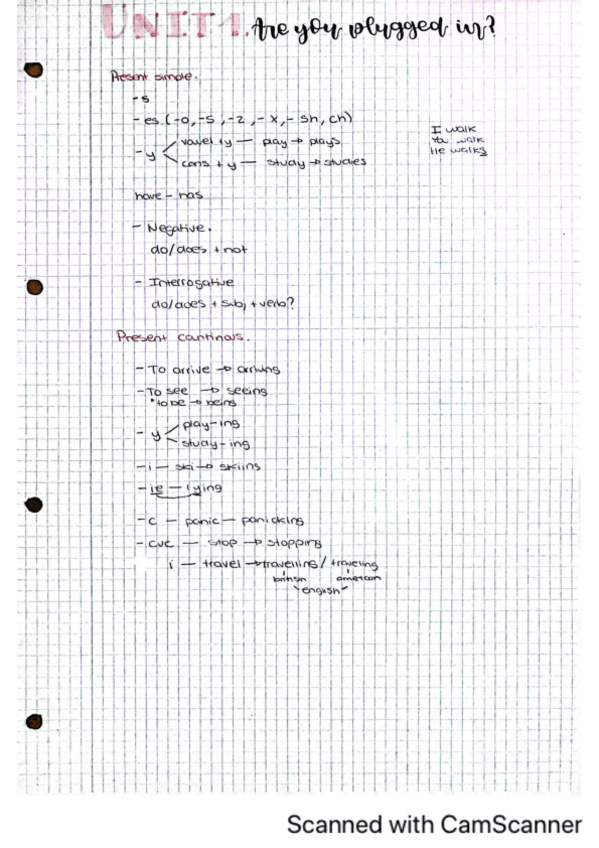 UNIT 1. Are you plugged in?
Present simple.
-s
-es (-o, -s, -z, -x, -sh, ch)
-y < vowel + y — play → plays
cons + y — study → studies
I walk
You walk
He walks
have - has
- Negative.
do/does + not
- Interrogative
do/does + subj + verb?
Present continous.
- To arrive → arriving
- To see → seeing
*to be → being
- y < play-ing
study-ing
-i — ski → skiing
-ie — lying
-c — panic — panicking
-cvc — stop → stopping
l — travel → travelling / traveling
british american
english
Scanned with CamScanner